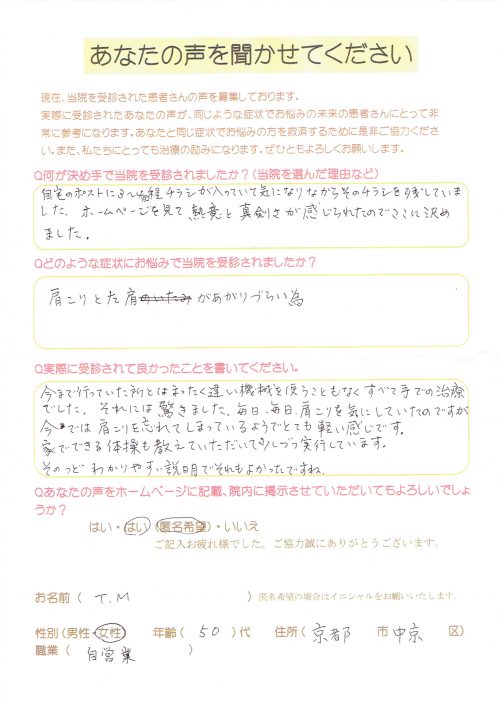 あなたの声を聞かせてください
現在、当院を受診された患者さんの声を募集しております。
実際に受診されたあなたの声が、同じような症状でお悩みの未来の患者さんにとって非
常に参考になります。あなたと同じ症状でお悩みの方を救済するために是非ご協力くださ
い。また、私たちにとっても治療の励みになります。ぜひともよろしくお願いします。
Q何が決め手で当院を受診されましたか？（当院を選んだ理由など）
自宅のポストに3〜4回程チラシが入っていて気になりながらそのチラシを残していま
した。ホームページを見て 熱意と真剣さが感じられたのでここに決め
ました。
Qどのような症状にお悩みで当院を受診されましたか？
肩こりと左肩のいたみがあがりづらい為
Q実際に受診されて良かったことを書いてください。
今まで行っていた所とはまったく違い機械を使うこともなくすべて手での治療
でした。それには驚きました。毎日、毎日、肩こりを気にしていたのですが
今では肩こりを忘れてしまっているようでとても軽い感じです。
家でできる体操も教えていただいて少しづつ実行しています。
そのつど わかりやすい説明でそれもよかったですね。
Qあなたの声をホームページに記載、院内に掲示させていただいてもよろしいでしょ
うか？
はい・はい（匿名希望）・いいえ
ご記入お疲れ様でした。ご協力誠にありがとうございます。
お名前（ T.M ）匿名希望の場合はイニシャルをお願いいたします。
性別（男性・女性） 年齢（ 50 ）代 住所（ 京都 市 中京 区）
職業（ 自営業 ）